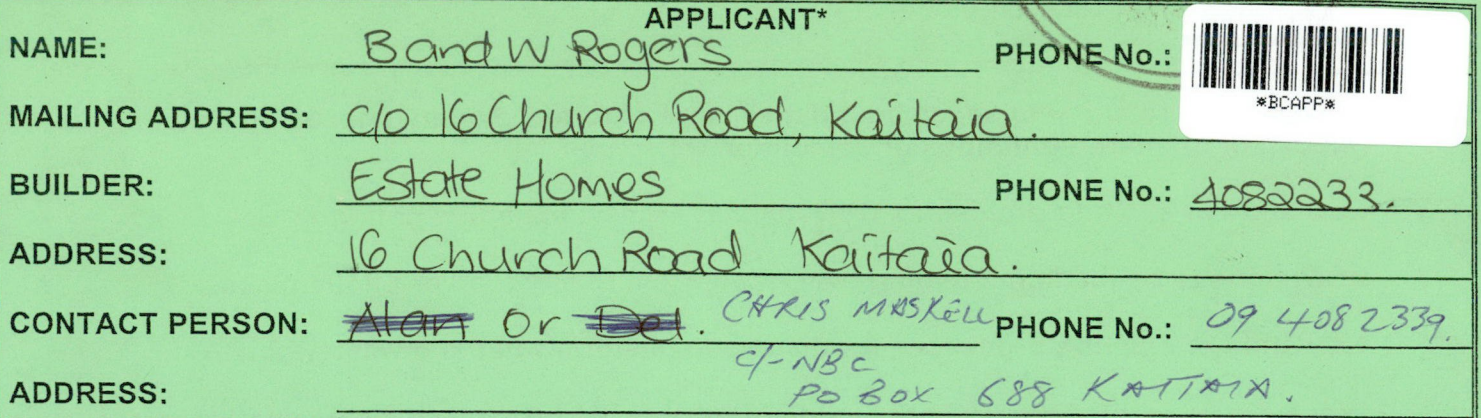 APPLICANT*
NAME: B and W Rogers PHONE No.:
*BCAPP*
MAILING ADDRESS: c/o 16 Church Road, Kaitaia.
BUILDER: Estate Homes PHONE No.: 4082233.
ADDRESS: 16 Church Road Kaitaia.
CONTACT PERSON: Alan or Del. CHRIS MASKELL PHONE No.: 09 4082339.
C/- NBC
ADDRESS: PO BOX 688 KAITAIA.